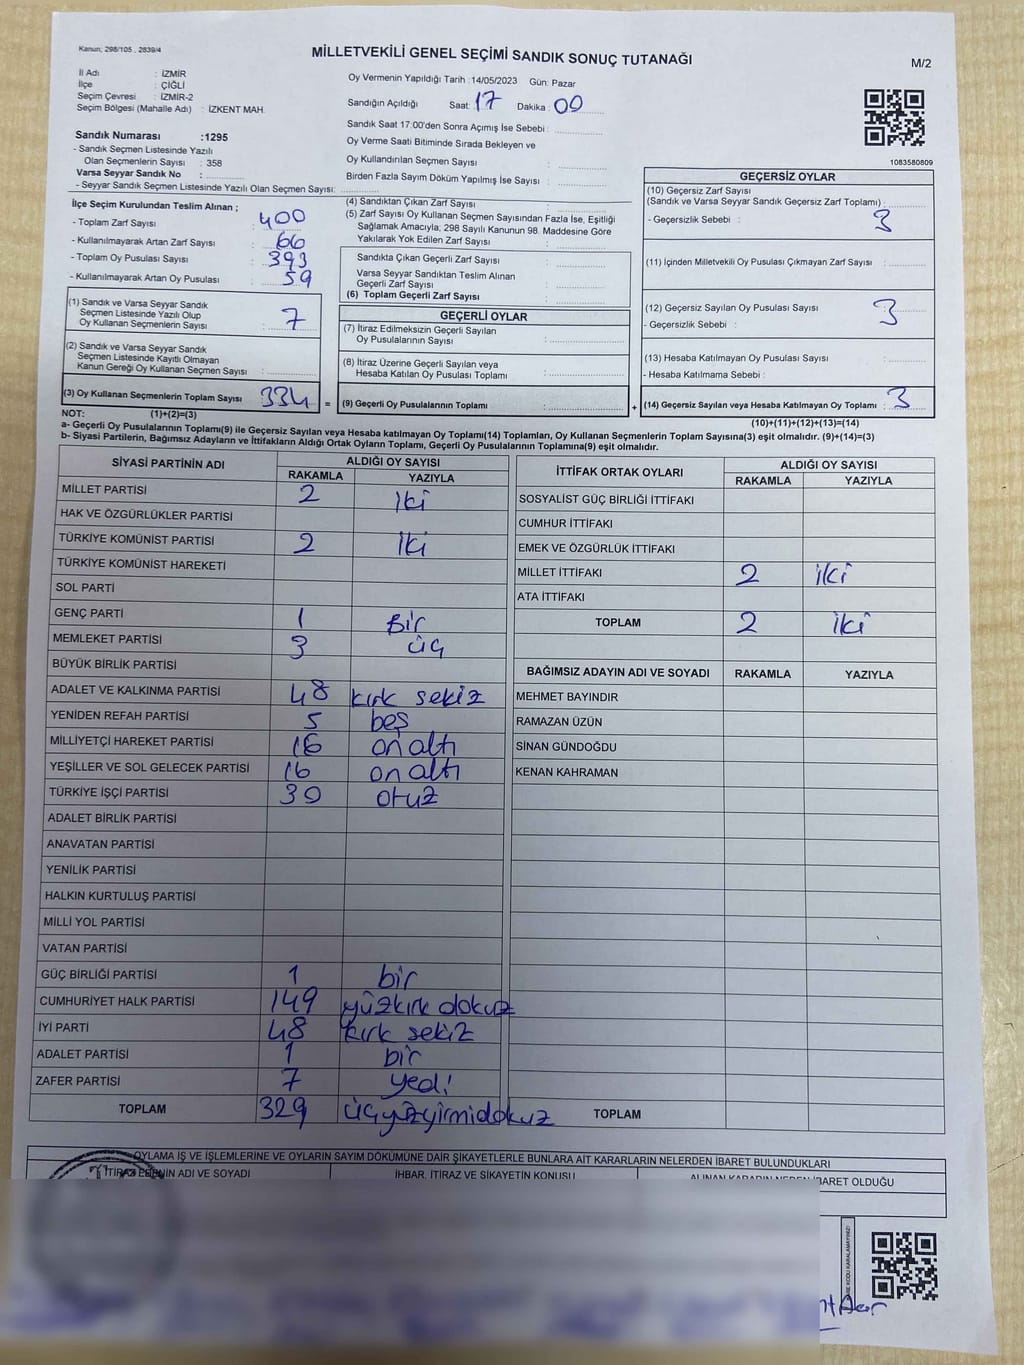 Kanun; 298/105 , 2839/4
MİLLETVEKİLİ GENEL SEÇİMİ SANDIK SONUÇ TUTANAĞI
M/2
İl Adı : İZMİR
İlçe : ÇİĞLİ
Seçim Çevresi : İZMİR-2
Seçim Bölgesi (Mahalle Adı) : İZKENT MAH.
Oy Vermenin Yapıldığı Tarih :14/05/2023 Gün: Pazar
Sandığın Açıldığı Saat: 17 Dakika : 00
Sandık Saat 17:00'den Sonra Açımış İse Sebebi :
Oy Verme Saati Bitiminde Sırada Bekleyen ve
Oy Kullandırılan Seçmen Sayısı :
Birden Fazla Sayım Döküm Yapılmış İse Sayısı :
1083580809
Sandık Numarası :1295
- Sandık Seçmen Listesinde Yazılı
Olan Seçmenlerin Sayısı : 358
Varsa Seyyar Sandık No :
- Seyyar Sandık Seçmen Listesinde Yazılı Olan Seçmen Sayısı:
İlçe Seçim Kurulundan Teslim Alınan ;
- Toplam Zarf Sayısı : 400
- Kullanılmayarak Artan Zarf Sayısı : 66
- Toplam Oy Pusulası Sayısı : 393
- Kullanılmayarak Artan Oy Pusulası : 59
(1) Sandık ve Varsa Seyyar Sandık
Seçmen Listesinde Yazılı Olup
Oy Kullanan Seçmenlerin Sayısı : 7
(2) Sandık ve Varsa Seyyar Sandık
Seçmen Listesinde Kayıtlı Olmayan
Kanun Gereği Oy Kullanan Seçmen Sayısı :
(3) Oy Kullanan Seçmenlerin Toplam Sayısı : 334 =
(4) Sandıktan Çıkan Zarf Sayısı :
(5) Zarf Sayısı Oy Kullanan Seçmen Sayısından Fazla İse, Eşitliği
Sağlamak Amacıyla; 298 Sayılı Kanunun 98. Maddesine Göre
Yakılarak Yok Edilen Zarf Sayısı :
Sandıkta Çıkan Geçerli Zarf Sayısı :
Varsa Seyyar Sandıktan Teslim Alınan
Geçerli Zarf Sayısı :
(6) Toplam Geçerli Zarf Sayısı :
GEÇERLİ OYLAR
(7) İtiraz Edilmeksizin Geçerli Sayılan
Oy Pusulalarının Sayısı :
(8) İtiraz Üzerine Geçerli Sayılan veya
Hesaba Katılan Oy Pusulası Toplamı :
(9) Geçerli Oy Pusulalarının Toplamı : +
GEÇERSİZ OYLAR
(10) Geçersiz Zarf Sayısı
(Sandık ve Varsa Seyyar Sandık Geçersiz Zarf Toplamı) :
- Geçersizlik Sebebi : 3
(11) İçinden Milletvekili Oy Pusulası Çıkmayan Zarf Sayısı :
(12) Geçersiz Sayılan Oy Pusulası Sayısı : 3
- Geçersizlik Sebebi :
(13) Hesaba Katılmayan Oy Pusulası Sayısı :
- Hesaba Katılmama Sebebi :
(14) Geçersiz Sayılan veya Hesaba Katılmayan Oy Toplamı : 3
(10)+(11)+(12)+(13)=(14)
NOT: (1)+(2)=(3)
a- Geçerli Oy Pusulalarının Toplamı(9) ile Geçersiz Sayılan veya Hesaba katılmayan Oy Toplamı(14) Toplamları, Oy Kullanan Seçmenlerin Toplam Sayısına(3) eşit olmalıdır. (9)+(14)=(3)
b- Siyasi Partilerin, Bağımsız Adayların ve İttifakların Aldığı Ortak Oyların Toplamı, Geçerli Oy Pusulalarının Toplamına(9) eşit olmalıdır.
SİYASİ PARTİNİN ADI ALDIĞI OY SAYISI
RAKAMLA YAZIYLA
MİLLET PARTİSİ 2 iki
HAK VE ÖZGÜRLÜKLER PARTİSİ
TÜRKİYE KOMÜNİST PARTİSİ 2 iki
TÜRKİYE KOMÜNİST HAREKETİ
SOL PARTİ
GENÇ PARTİ 1 Bir
MEMLEKET PARTİSİ 3 üç
BÜYÜK BİRLİK PARTİSİ
ADALET VE KALKINMA PARTİSİ 48 kırk sekiz
YENİDEN REFAH PARTİSİ 5 beş
MİLLİYETÇİ HAREKET PARTİSİ 16 on altı
YEŞİLLER VE SOL GELECEK PARTİSİ 16 on altı
TÜRKİYE İŞÇİ PARTİSİ 30 otuz
ADALET BİRLİK PARTİSİ
ANAVATAN PARTİSİ
YENİLİK PARTİSİ
HALKIN KURTULUŞ PARTİSİ
MİLLİ YOL PARTİSİ
VATAN PARTİSİ
GÜÇ BİRLİĞİ PARTİSİ 1 bir
CUMHURİYET HALK PARTİSİ 149 yüzkırk dokuz
İYİ PARTİ 48 kırk sekiz
ADALET PARTİSİ 1 bir
ZAFER PARTİSİ 7 yedi
TOPLAM 329 üçyüzyirmidokuz
İTTİFAK ORTAK OYLARI ALDIĞI OY SAYISI
RAKAMLA YAZIYLA
SOSYALİST GÜÇ BİRLİĞİ İTTİFAKI
CUMHUR İTTİFAKI
EMEK VE ÖZGÜRLÜK İTTİFAKI
MİLLET İTTİFAKI 2 iki
ATA İTTİFAKI
TOPLAM 2 iki
BAĞIMSIZ ADAYIN ADI VE SOYADI RAKAMLA YAZIYLA
MEHMET BAYINDIR
RAMAZAN ÜZÜN
SİNAN GÜNDOĞDU
KENAN KAHRAMAN
TOPLAM
OYLAMA İŞ VE İŞLEMLERİNE VE OYLARIN SAYIM DÖKÜMÜNE DAİR ŞİKAYETLERLE BUNLARA AİT KARARLARIN NELERDEN İBARET BULUNDUKLARI
İTİRAZ EDENİN ADI VE SOYADI İHBAR, İTİRAZ VE ŞİKAYETİN KONUSU ALINAN KARARIN NEDEN İBARET OLDUĞU